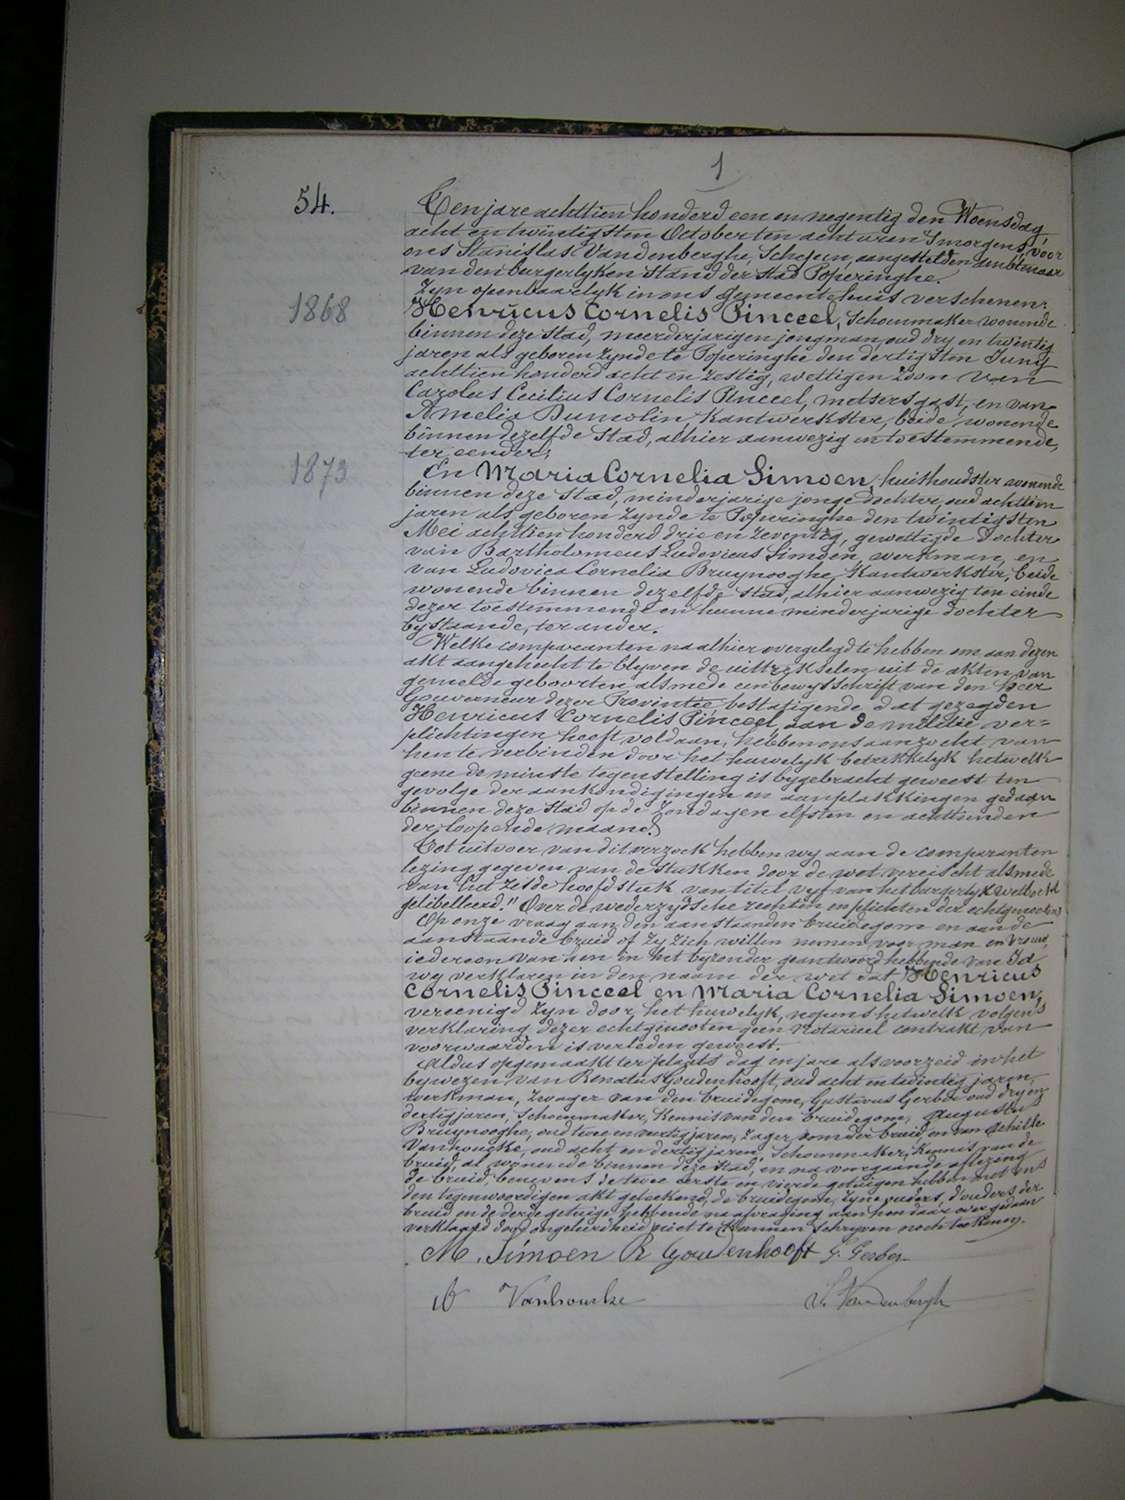 1
54.
Tenjare achttien honderd een en negentig den Woensdag
acht en twintigsten October ten acht uren 's morgens, voor
ons Stanislas Vandenberghe, Schepen, aangestelden ambtenaar
van den burgerlyken Stand der Stad Poperinghe.
Zyn openbaarlyk in ons gemeentehuis verschenen:
1868
Henricus Cornelis Pinceel, Schoenmaker wonende
binnen deze Stad, meerderjarigen jongman, oud dry en twintig
jaren als geboren zynde te Poperinghe den dertigsten Juny
achttien honderd acht en zestig, wettigen zoon van
Carolus Cecilius Cornelis Pinceel, metsersgast, en van
Amelia Dumolin, Kantwerkster, beide wonende
binnen dezelfde Stad, alhier aanwezig en toestemmende,
ter eender;
1873
En Maria Cornelia Simoen, huishoudster wonende
binnen deze Stad, minderjarige jonge dochter, oud achttien
jaren als geboren zynde te Poperinghe den twintigsten
Mei achttien honderd drie en zeventig, gewettigde dochter
van Bartholomeus Ludovicus Simoen, werkman, en
van Ludovica Cornelia Bruynooghe, Kantwerkster, beide
wonende binnen dezelfde Stad, alhier aanwezig ten einde
dezer toestemmende en hunne minderjarige dochter
bystaande, ter ander.
Welke comparanten na alhier overgelegd te hebben om aan dezen
akt aangehecht te blyven de uittrekselen uit de akten van
gemelde geboorten alsmede een bewysschrift van den heer
Gouverneur dezer Provintie bestatigende dat gezegden
Henricus Cornelis Pinceel, aan de militie ver=
plichtingen heeft voldaan, hebben ons aanzocht van
hen te verbinden door het huwelyk betrekkelyk hetwelk
geene de minste tegenstelling is bygebracht geweest ten
gevolge der aankondigingen en aanplakkingen gedaan
binnen deze Stad op de Zondagen elfsten en achttienden
der loopende maand.
Tot uitvoer van dit verzoek hebben wy aan de comparanten
lezing gegeven van de Stukken door de wet vereischt alsmede
van het zesde hoofdstuk van titel vyf van het burgerlyk wetboek
gelibelleerd "Over de wederzydsche rechten en plichten der echtgenooten"
Op onze vraag aan den aanstaanden bruidegom en aan de
aanstaande bruid of zy zich willen nemen voor man en vrouw,
iedereen van hen in het byzonder geantwoord hebbende van Ja
wy verklaren in den naam der wet dat Henricus
Cornelis Pinceel en Maria Cornelia Simoen,
vereenigd zyn door het huwelyk, nopens hetwelk volgens
verklaring dezer echtgenooten geen notarieel contrakt van
voorwaarden is verleden geweest.
Aldus opgemaakt ter plaats dag en jare als voorzeid in het
bywezen van Renatus Goudenhooft, oud acht en twintig jaren,
werkman, zwager van den bruidegom, Gustavus Gerber oud dry en
dertig jaren, Schoenmaker, Kennis van den bruidegom, Augustus
Bruynooghe, oud twee en veertig jaren, Zager, oom der bruid en van Achille
Vanhoucke, oud acht en dertig jaren, Schoenmaker, Kennis van de
bruid, al wonende binnen deze Stad, en na voorgaande aflezing
de bruid, benevens de twee eerste en vierde getuigen hebben met ons
den tegenwoordigen akt geteekend, de bruidegom, zyne ouders, d'ouders der
bruid en de derde getuige hebbende na afvraging aan hen daar over gedaan
verklaard door ongeleerdheid niet te kunnen Schryven noch teekenen.
M. Simoen R Goudenhooft G. Gerber
Vanhoucke S. Vandenberghe